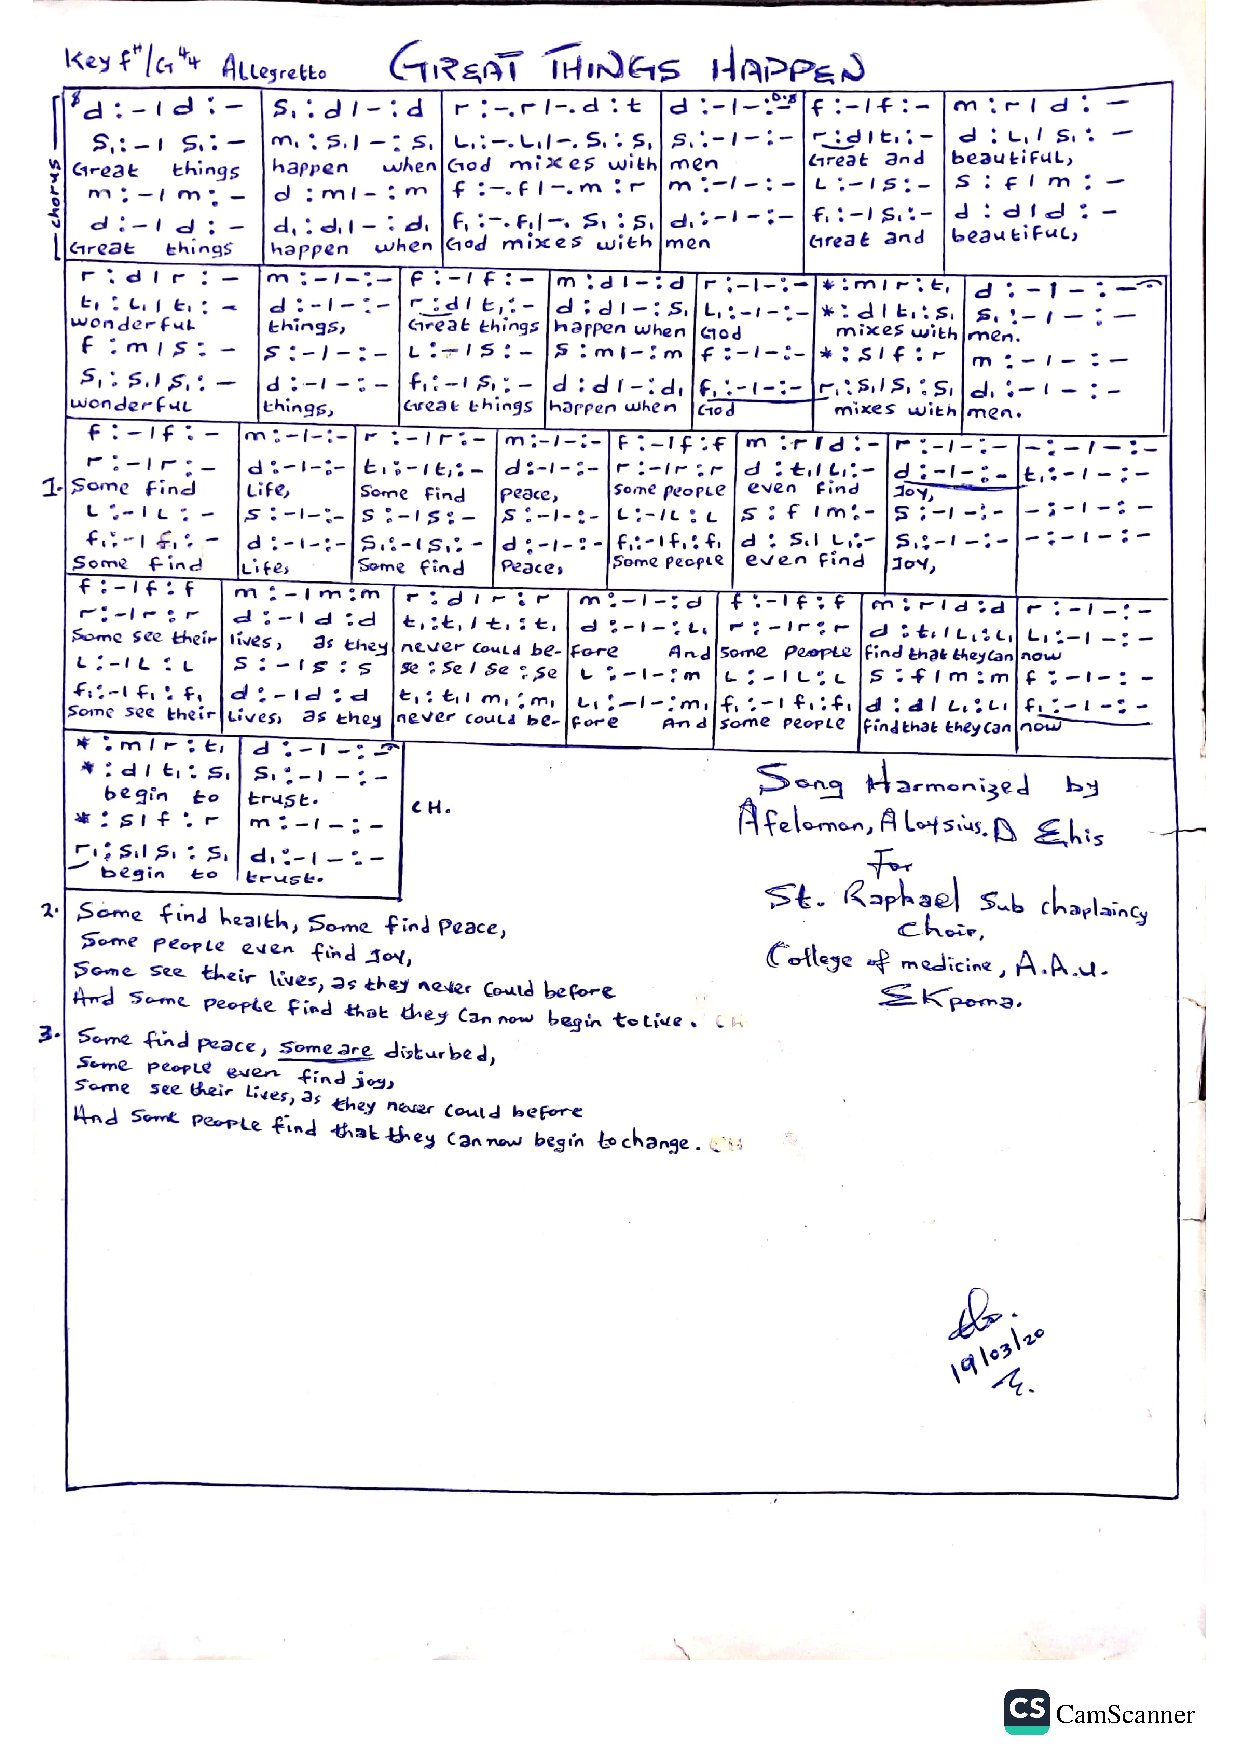 Key f#/G 4/4 Allegretto GREAT THINGS HAPPEN
chorus
d :- | d :- | s, : d | - : d | r :-. r | -. d : t | d :- | - :- D.S | f :- | f :- | m : r | d : -
s, :- | s, :- | m, : s, | - : s, | L, :-. L, | -. s, : s, | s, :- | - :- | r : d | t, :- | d : L, | s, : -
Great things happen when God mixes with men Great and beautiful,
m :- | m :- | d : m | - : m | f :-. f | -. m : r | m :- | - :- | L :- | s :- | s : f | m : -
d :- | d :- | d, : d, | - : d, | f, :-. f, | -. s, : s, | d, :- | - :- | f, :- | s, :- | d : d | d : -
Great things happen when God mixes with men Great and beautiful,
r : d | r : - | m :- | - :- | f :- | f :- | m : d | - : d | r :- | - :- | * : m | r : t, | d :- | - :-
t, : L, | t, : - | d :- | - :- | r : d | t, :- | d : d | - : s, | L, :- | - :- | * : d | t, : s, | s, :- | - :-
wonderful things, Great things happen when God mixes with men.
f : m | s : - | s :- | - :- | L :- | s :- | s : m | - : m | f :- | - :- | * : s | f : r | m :- | - :-
s, : s, | s, : - | d :- | - :- | f, :- | s, :- | d : d | - : d, | f, :- | - :- | r, : s, | s, : s, | d, :- | - :-
wonderful things, Great things happen when God mixes with men.
f :- | f :- | m :- | - :- | r :- | r :- | m :- | - :- | f :- | f : f | m : r | d :- | r :- | - :- | - :- | - :-
r :- | r :- | d :- | - :- | t, :- | t, :- | d :- | - :- | r :- | r : r | d : t, | L, :- | d :- | - :- | t, :- | - :-
1. Some find Life, Some find peace, Some people even find Joy,
L :- | L :- | s :- | - :- | s :- | s :- | s :- | - :- | L :- | L : L | s : f | m :- | s :- | - :- | - :- | - :-
f, :- | f, :- | d :- | - :- | s, :- | s, :- | d :- | - :- | f, :- | f, : f, | d : s, | L, :- | s, :- | - :- | - :- | - :-
Some find Life, Some find Peace, Some people even find Joy,
f :- | f : f | m :- | m : m | r : d | r : r | m :- | - : d | f :- | f : f | m : r | d : d | r :- | - :-
r :- | r : r | d :- | d : d | t, : t, | t, : t, | d :- | - : L, | r :- | r : r | d : t, | L, : L, | L, :- | - :-
Some see their lives, as they never could be- fore And some people find that they can now
L :- | L : L | s :- | s : s | se : se | se : se | L :- | - : m | L :- | L : L | s : f | m : m | f :- | - :-
f, :- | f, : f, | d :- | d : d | t, : t, | m, : m, | L, :- | - : m, | f, :- | f, : f, | d : d | L, : L, | f, :- | - :-
Some see their Lives, as they never could be- fore And some people find that they can now
* : m | r : t, | d :- | - :-
* : d | t, : s, | s, :- | - :-
begin to trust.
* : s | f : r | m :- | - :-
r, : s, | s, : s, | d, :- | - :-
begin to trust.
CH.
Song Harmonized by
Afeloman, Aloysius. D Ehis
For
St. Raphael Sub chaplaincy
Choir,
College of medicine, A.A.U.
Ekpoma.
2. Some find health, Some find Peace,
Some people even find Joy,
Some see their lives, as they never could before
And Some people find that they can now begin to live. CH
3. Some find peace, Some are disturbed,
Some people even find joy,
Some see their lives, as they never could before
And Some people find that they can now begin to change. CH
19/03/20
CS CamScanner